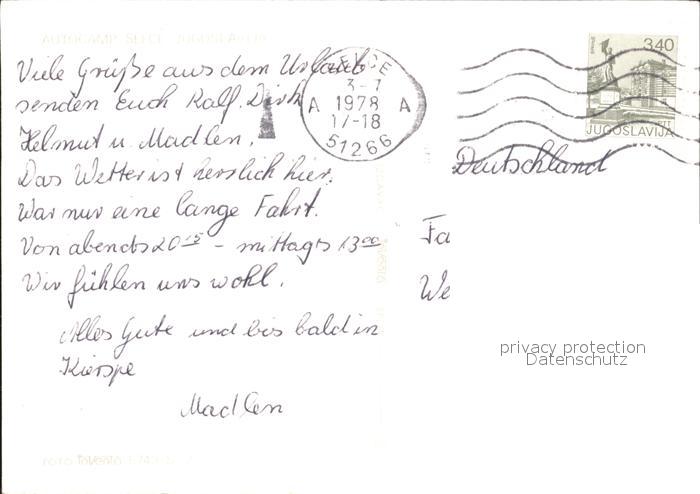 AUTOCAMP SELCE JUGOSLAVIJA
Viele Grüße aus dem Urlaub
senden Euch Ralf. Dirk
Helmut u. Madlen.
Das Wetter ist herrlich hier.
War nur eine lange Fahrt.
Von abends 20 15 - mittags 13 00
Wir fühlen uns wohl.
Alles Gute und bis bald in
Kierspe
Madlen
FOTO
SELCE
3-7
A 1978 A
17-18
51266
3.40
JUGOSLAVIJA
Deutschland
Fa
We
privacy protection
Datenschutz